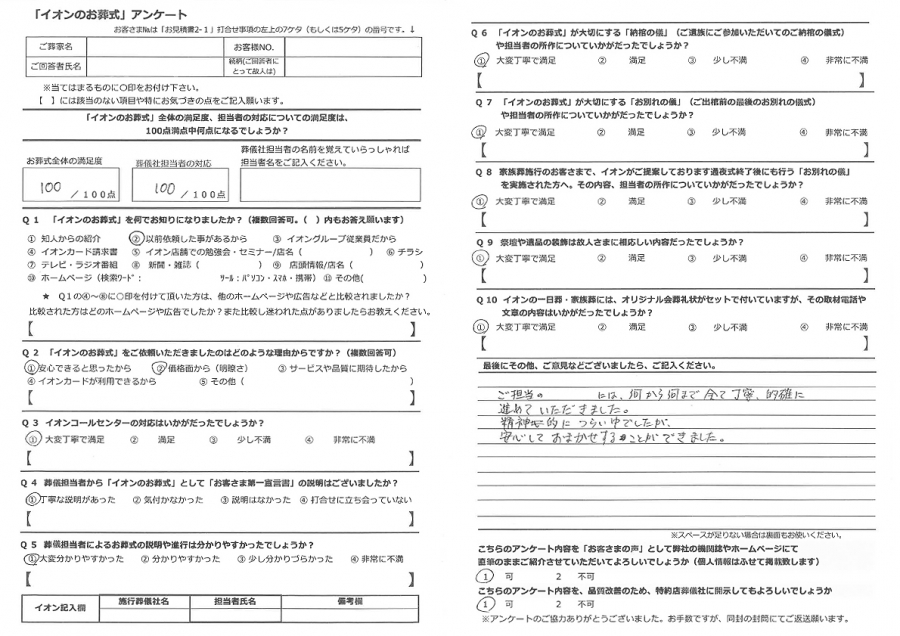 「イオンのお葬式」アンケート
お客さま№は「お見積書2-1」打合せ事項の左上の7ケタ（もしくは5ケタ）の番号です。↓
ご葬家名 お客様NO.
ご回答者氏名 続柄(ご回答者にとって故人は)
※当てはまるものに○印をお付け下さい。
【 】には該当のない項目や特にお気づきの点をご記入願います。
「イオンのお葬式」全体の満足度、担当者の対応についての満足度は、
100点満点中何点になるでしょうか？
お葬式全体の満足度 葬儀社担当者の対応 葬儀社担当者の名前を覚えていらっしゃれば
担当者名をご記入ください。
100 /100点 100 /100点
Q 1 「イオンのお葬式」を何でお知りになりましたか？（複数回答可。（ ）内もお答え願います）
① 知人からの紹介 ②以前依頼した事があるから ③ イオングループ従業員だから
④ イオンカード請求書 ⑤ イオン店舗での勉強会・セミナー/店名（ ） ⑥ チラシ
⑦ テレビ・ラジオ番組 ⑧ 新聞・雑誌（ ） ⑨ 店頭情報/店名（ ）
⑩ ホームページ（検索ﾜｰﾄﾞ： ﾂｰﾙ：ﾊﾟｿｺﾝ・ｽﾏﾎ・携帯） ⑪ その他( )
★ Q１の④～⑩に○印を付けて頂いた方は、他のホームページや広告などと比較されましたか？
比較された方はどのホームページや広告でしたか？また比較し迷われた点がありましたらお教えください。
【 】
Q 2 「イオンのお葬式」をご依頼いただきましたのはどのような理由からですか？（複数回答可）
①安心できると思ったから ②価格面から（明瞭さ） ③ サービスや品質に期待したから
④ イオンカードが利用できるから ⑤ その他（ ）
【 】
Q 3 イオンコールセンターの対応はいかがだったでしょうか？
① 大変丁寧で満足 ② 満足 ③ 少し不満 ④ 非常に不満
【 】
Q 4 葬儀担当者から「イオンのお葬式」として「お客さま第一宣言書」の説明はございましたか？
①丁寧な説明があった ② 気付かなかった ③ 説明はなかった ④ 打合せに立ち会っていない
【 】
Q 5 葬儀担当者によるお葬式の説明や進行は分かりやすかったでしょうか？
①大変分かりやすかった ② 分かりやすかった ③ 少し分かりづらかった ④ 非常に不満
【 】
イオン記入欄 施行葬儀社名 担当者氏名 備考欄
Q 6 「イオンのお葬式」が大切にする「納棺の儀」（ご遺族にご参加いただいてのご納棺の儀式）
や担当者の所作についていかがだったでしょうか？
① 大変丁寧で満足 ② 満足 ③ 少し不満 ④ 非常に不満
【 】
Q 7 「イオンのお葬式」が大切にする「お別れの儀」（ご出棺前の最後のお別れの儀式）
や担当者の所作についていかがだったでしょうか？
① 大変丁寧で満足 ② 満足 ③ 少し不満 ④ 非常に不満
【 】
Q 8 家族葬施行のお客さまで、イオンがご提案しております通夜式終了後にも行う「お別れの儀」
を実施された方へ。その内容、担当者の所作についていかがだったでしょうか？
① 大変丁寧で満足 ② 満足 ③ 少し不満 ④ 非常に不満
【 】
Q 9 祭壇や遺品の装飾は故人さまに相応しい内容だったでしょうか？
① 大変丁寧で満足 ② 満足 ③ 少し不満 ④ 非常に不満
【 】
Q 10 イオンの一日葬・家族葬には、オリジナル会葬礼状がセットで付いていますが、その取材電話や
文章の内容はいかがだったでしょうか？
① 大変丁寧で満足 ② 満足 ③ 少し不満 ④ 非常に不満
【 】
最後にその他、ご意見などございましたら、ご記入ください。
ご担当の には、何から何まで全て丁寧、的確に
進めていただきました。
精神的に つらい中でしたが、
安心して おまかせすることができました。
※スペースが足りない場合は裏面もお使いください。
こちらのアンケート内容を「お客さまの声」として弊社の機関誌やホームページにて
直筆のままご紹介させていただいてよろしいでしょうか（個人情報はふせて掲載致します）
1 可 2 不可
こちらのアンケート内容を、品質改善のため、特約店葬儀社に開示してもよろしいでしょうか
1 可 2 不可
※アンケートのご協力ありがとうございました。お手数ですが、同封の封筒にてご返送願います。